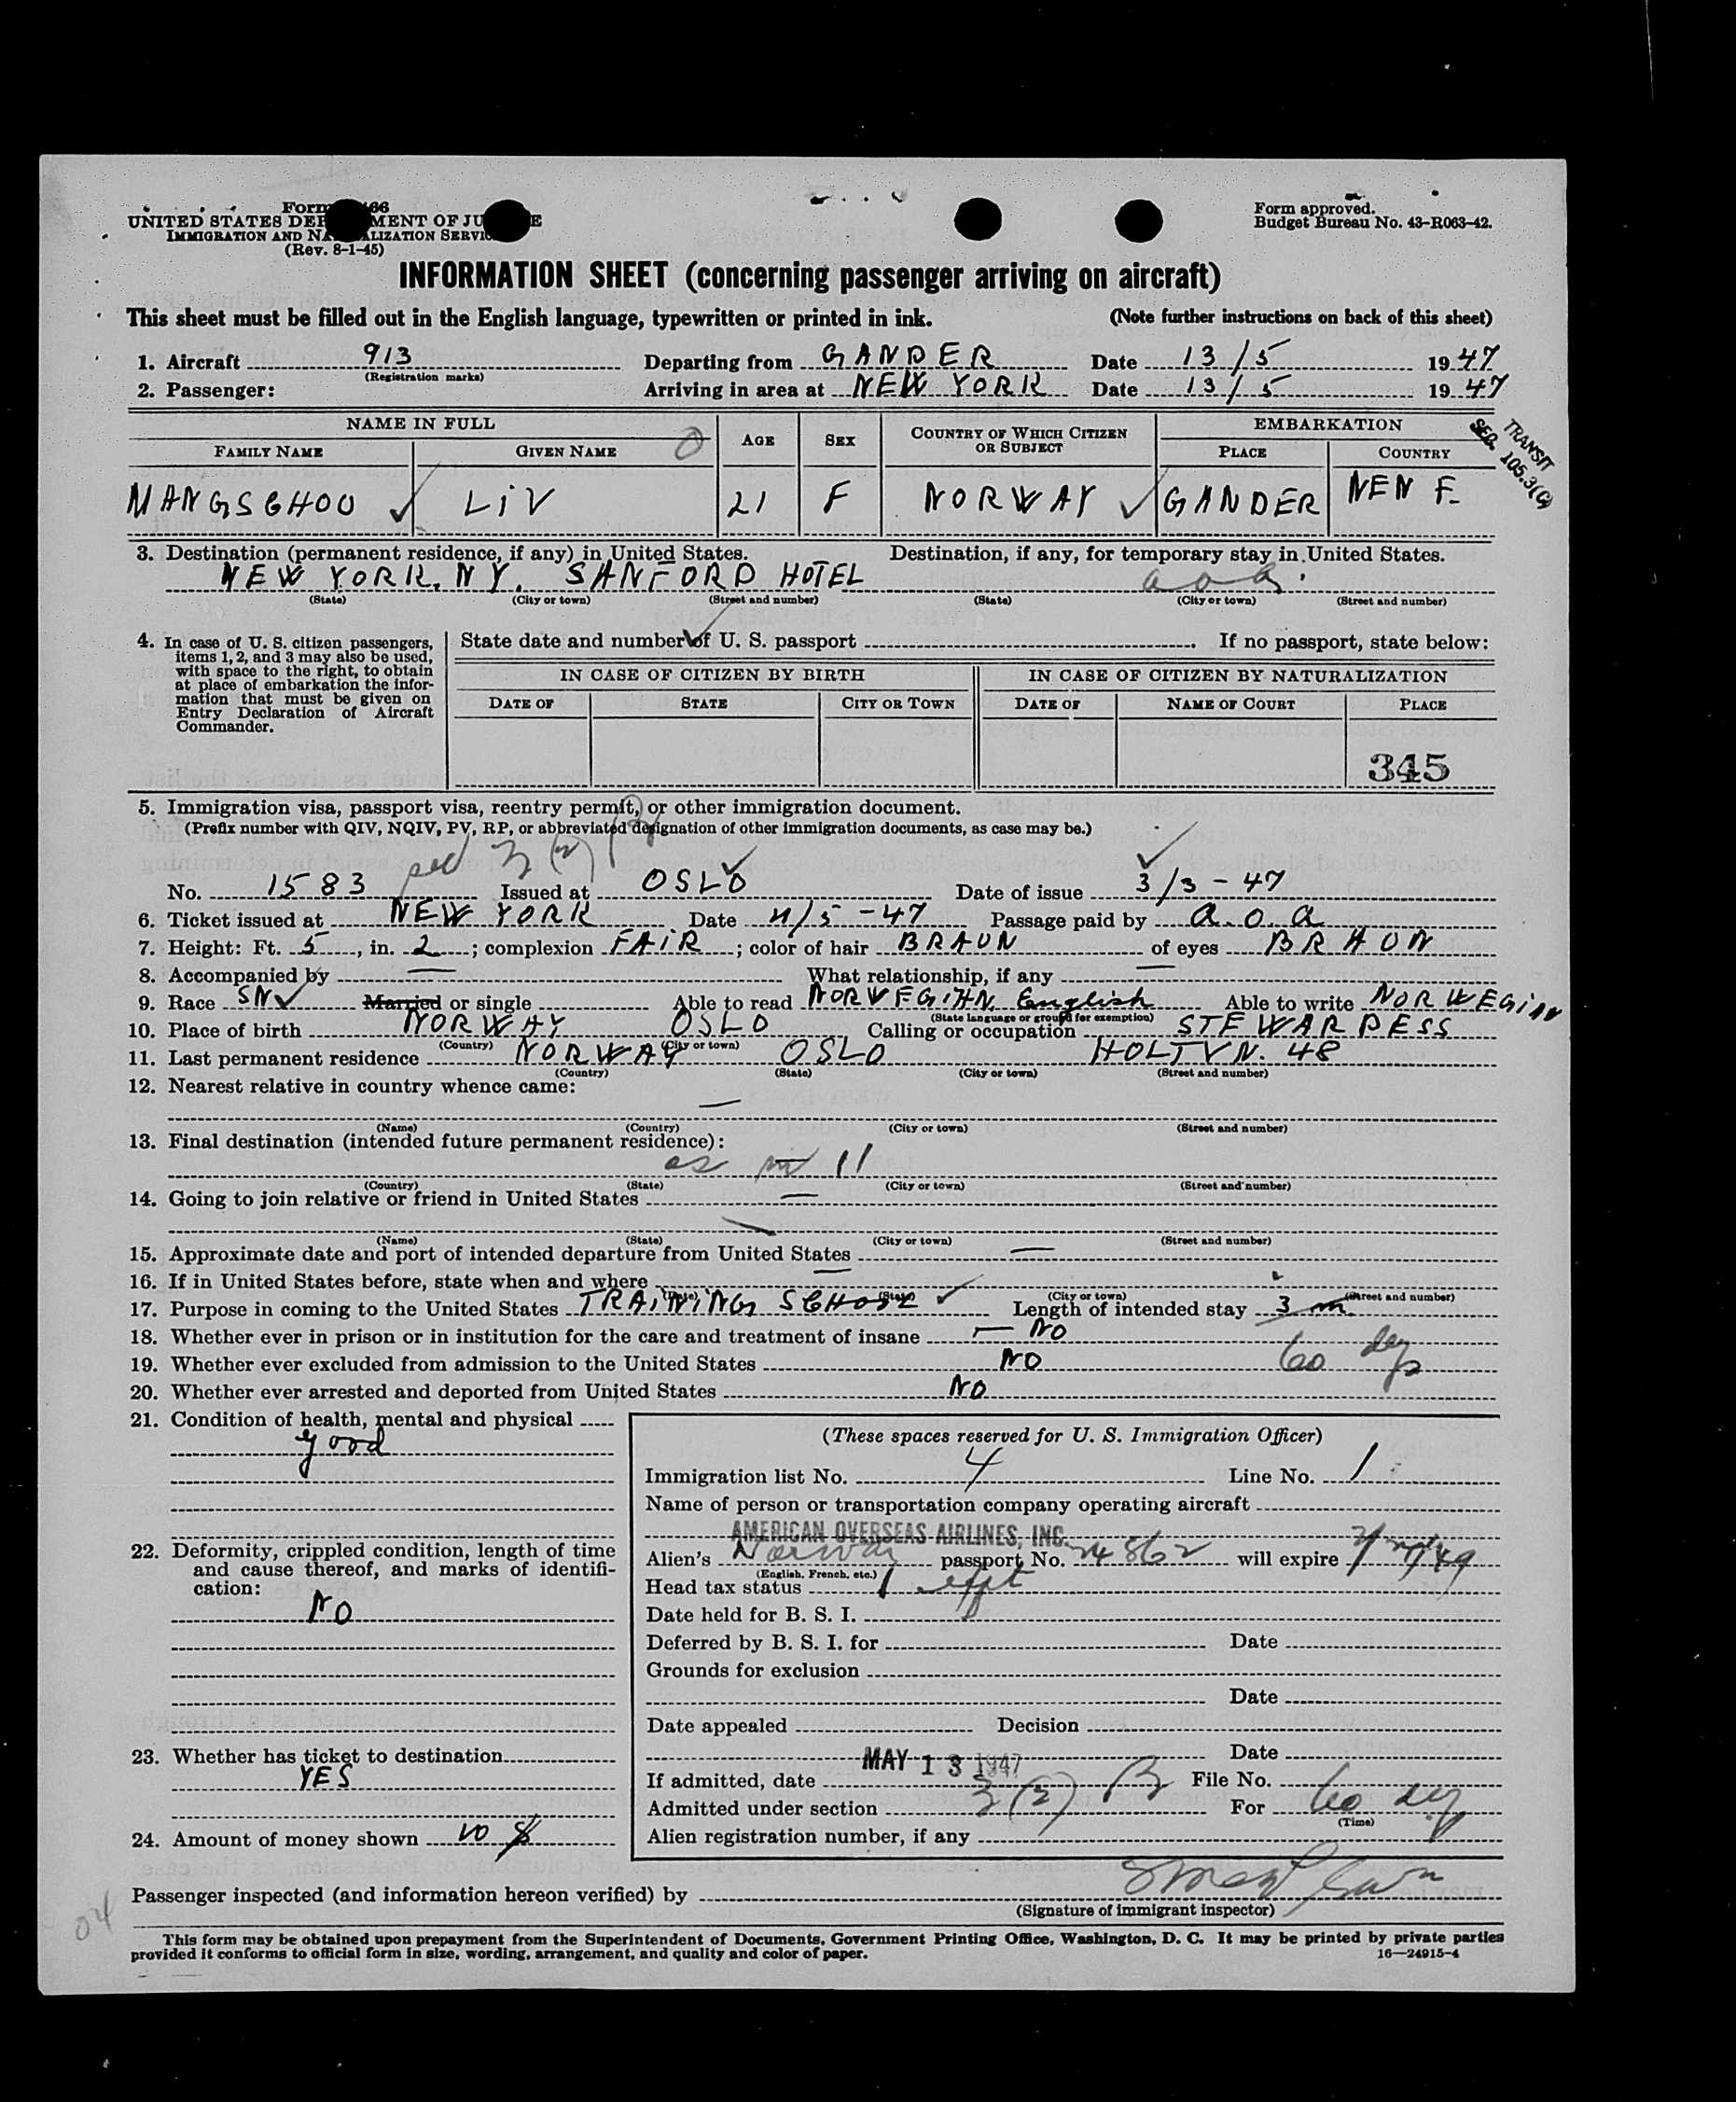 Form 66
UNITED STATES DEP MENT OF JU E
IMMIGRATION AND NA LIZATION SERVIC
(Rev. 8-1-45)
Form approved.
Budget Bureau No. 43-R063-42.
INFORMATION SHEET (concerning passenger arriving on aircraft)
This sheet must be filled out in the English language, typewritten or printed in ink. (Note further instructions on back of this sheet)
1. Aircraft 913 Departing from GANDER Date 13/5 1947
(Registration marks)
2. Passenger: Arriving in area at NEW YORK Date 13/5 1947
NAME IN FULL AGE SEX COUNTRY OF WHICH CITIZEN OR SUBJECT EMBARKATION
FAMILY NAME GIVEN NAME PLACE COUNTRY
TRANSIT
SEC. 105.3(C)
MANGSCHOU LiV 21 F NORWAY GANDER NEN F.
3. Destination (permanent residence, if any) in United States. Destination, if any, for temporary stay in United States.
NEW YORK, N Y. SANFORD HOTEL a o a.
(State) (City or town) (Street and number) (State) (City or town) (Street and number)
4. In case of U. S. citizen passengers, items 1, 2, and 3 may also be used, with space to the right, to obtain at place of embarkation the information that must be given on Entry Declaration of Aircraft Commander.
State date and number of U. S. passport . If no passport, state below:
IN CASE OF CITIZEN BY BIRTH IN CASE OF CITIZEN BY NATURALIZATION
DATE OF STATE CITY OR TOWN DATE OF NAME OF COURT PLACE
345
5. Immigration visa, passport visa, reentry permit, or other immigration document.
(Prefix number with QIV, NQIV, PV, RP, or abbreviated designation of other immigration documents, as case may be.)
3 (2)
No. 1583 Issued at OSLO Date of issue 3/3-47
6. Ticket issued at NEW YORK Date 4/5-47 Passage paid by a.o.a
7. Height: Ft. 5, in. 2; complexion FAiR; color of hair BRAUN of eyes BRAUN
8. Accompanied by — What relationship, if any —
9. Race SN Married or single Able to read NORVEGiAN, English Able to write NORWEGiAN
(State language or ground for exemption)
10. Place of birth NORWAY OSLO Calling or occupation STEWARDESS
(Country) (City or town)
11. Last permanent residence NORWAY OSLO HOLTVN. 48
(Country) (State) (City or town) (Street and number)
12. Nearest relative in country whence came:
—
(Name) (Country) (City or town) (Street and number)
13. Final destination (intended future permanent residence):
as in 11
(Country) (State) (City or town) (Street and number)
14. Going to join relative or friend in United States —
(Name) (State) (City or town) (Street and number)
15. Approximate date and port of intended departure from United States —
16. If in United States before, state when and where —
(Date) (State) (City or town) (Street and number)
17. Purpose in coming to the United States TRAiNiNG SCHOOL Length of intended stay 3 m.
18. Whether ever in prison or in institution for the care and treatment of insane — NO
19. Whether ever excluded from admission to the United States NO 60 dys
20. Whether ever arrested and deported from United States NO
21. Condition of health, mental and physical
good
(These spaces reserved for U. S. Immigration Officer)
Immigration list No. 4 Line No. 1
Name of person or transportation company operating aircraft
AMERICAN OVERSEAS AIRLINES, INC.
22. Deformity, crippled condition, length of time and cause thereof, and marks of identification:
NO
Alien's Norway passport No. 24862 will expire
(English, French, etc.)
Head tax status
Date held for B. S. I.
Deferred by B. S. I. for Date
Grounds for exclusion
Date
Date appealed Decision
23. Whether has ticket to destination
YES
Date
MAY 13 1947
If admitted, date File No.
Admitted under section 3 (2) For 60 dy
(Time)
24. Amount of money shown 10 $
Alien registration number, if any
Passenger inspected (and information hereon verified) by
(Signature of immigrant inspector)
04
This form may be obtained upon prepayment from the Superintendent of Documents, Government Printing Office, Washington, D. C. It may be printed by private parties
provided it conforms to official form in size, wording, arrangement, and quality and color of paper. 16—24915-4